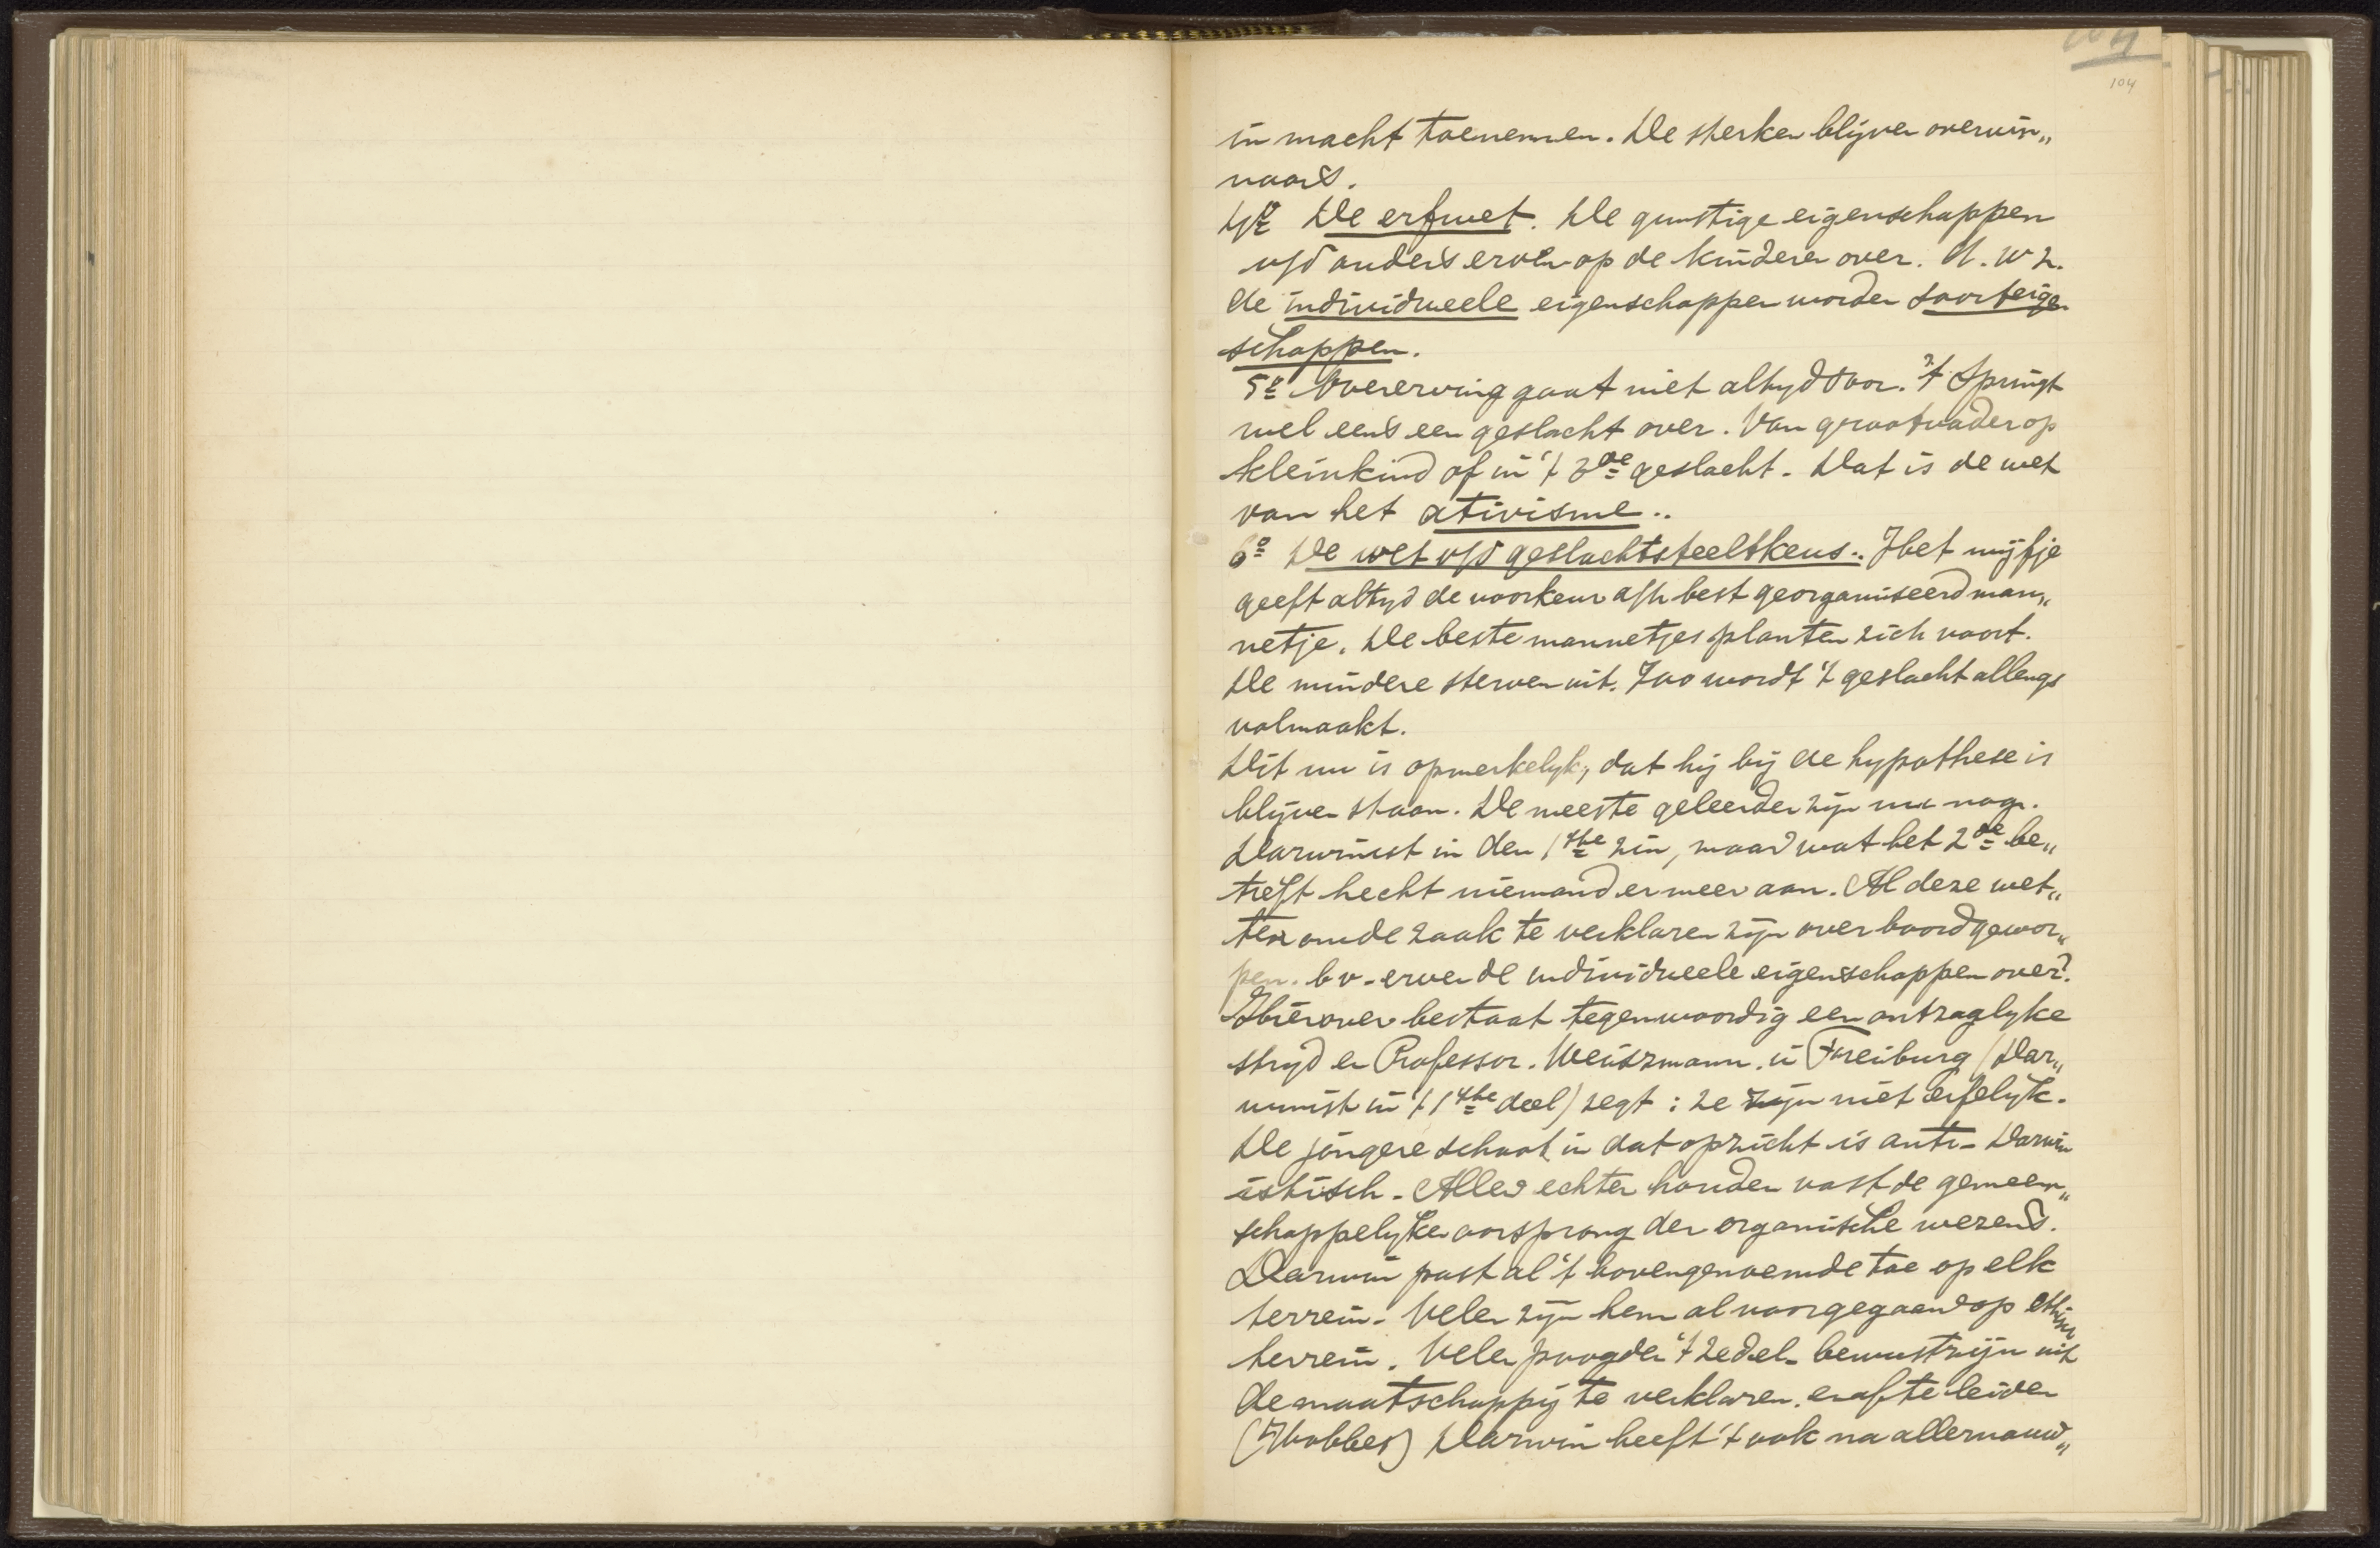 104
104
in macht toenemen. De sterken blijven overwin„
naars.
4º De erfwet. De gunstige eigenschappen
v/d ouders erven op de kinderen over. d. w z.
de individueele eigenschappen worden soorteigen
schappen.
5º Overerving gaat niet altyd door. 't Springt
wel eens een geslacht over. Van grootvader op
kleinkind of in 't 3de geslacht. Dat is de wet
van het ativisme..
6º De wet v/d geslachtsteeltkeus.. Het wijfje
geeft altyd de voorkeur a/h best georganiseerd man„
netje. De beste mannetjes planten zich voort.
De mindere sterven uit. Zoo wordt 't geslacht allengs
volmaakt.
Dit nu is opmerkelyk, dat hij bij de hypothese is
blijven staan. De meeste geleerden zijn nu nog.
Darwinist in den 1ste zin, maar wat het 2de be„
treft hecht niemand er meer aan. Al deze wet„
ten om de zaak te verklaren zijn over boord gewor„
pen. bv. erven de individueele eigenschappen over?
Hierover bestaat tegenwoordig een ontzaglyke
stryd en Professor. Weiszmann. in Freiburg (Dar„
winist in 't 1ste deel) zegt: ze zijn niet erfelyk.
De jongere school in dat opzicht is anti-Darwin
istisch. Allen echter houden vast de gemeen„
schappelyken oorsprong der organische wezens.
Darwin past al 't bovengenoemde toe op elk
terrein. Velen zijn hem al voorgegaan op ethisch
terrein. Velen poogden 't zedel. bewustzijn uit
de maatschappij te verklaren. en af te leiden
(Hobbes) Darwin heeft 't ook na allernauw„